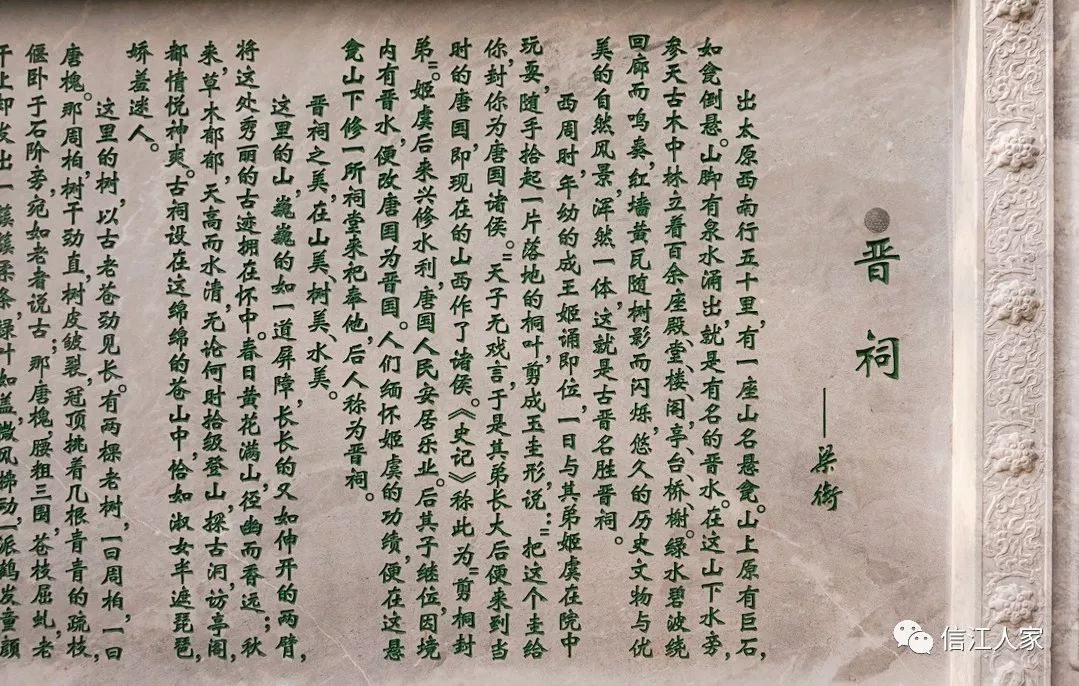 晋祠
——梁衡
出太原西南行五十里,有一座山名悬瓮。山上原有巨石,
如瓮倒悬。山脚有泉水涌出,就是有名的晋水。在这山下水旁,
参天古木中林立着百余座殿、堂、楼、阁、亭、台、桥、榭。绿水碧波绕
回廊而鸣奏,红墙黄瓦随树影而闪烁,悠久的历史文物与优
美的自然风景,浑然一体,这就是古晋名胜晋祠。
西周时,年幼的成王姬诵即位,一日与其弟姬虞在院中
玩耍,随手拾起一片落地的桐叶,剪成玉圭形,说:"把这个圭给
你,封你为唐国诸侯。"天子无戏言,于是其弟长大后便来到当
时的唐国,即现在的山西作了诸侯。《史记》称此为"剪桐封
弟"。姬虞后来兴修水利,唐国人民安居乐业。后其子继位,因境
内有晋水,便改唐国为晋国。人们缅怀姬虞的功绩,便在这悬
瓮山下修一所祠堂来祀奉他,后人称为晋祠。
晋祠之美,在山美、树美、水美。
这里的山,巍巍的如一道屏障,长长的又如伸开的两臂,
将这处秀丽的古迹拥在怀中。春日黄花满山,径幽而香远;秋
来,草木郁郁,天高而水清,无论何时拾级登山,探古洞,访亭阁,
都情悦神爽。古祠设在这绵绵的苍山中,恰如淑女半遮琵琶,
娇羞迷人。
这里的树,以古老苍劲见长。有两棵老树,一曰周柏,一曰
唐槐。那周柏,树干劲直,树皮皴裂,冠顶挑着几根青青的疏枝,
偃卧于石阶旁,宛如老者说古;那唐槐,腰粗三围,苍枝屈虬,老
干上却发出一簇簇柔条,绿叶如盖,微风拂动,一派鹤发童颜
信江人家